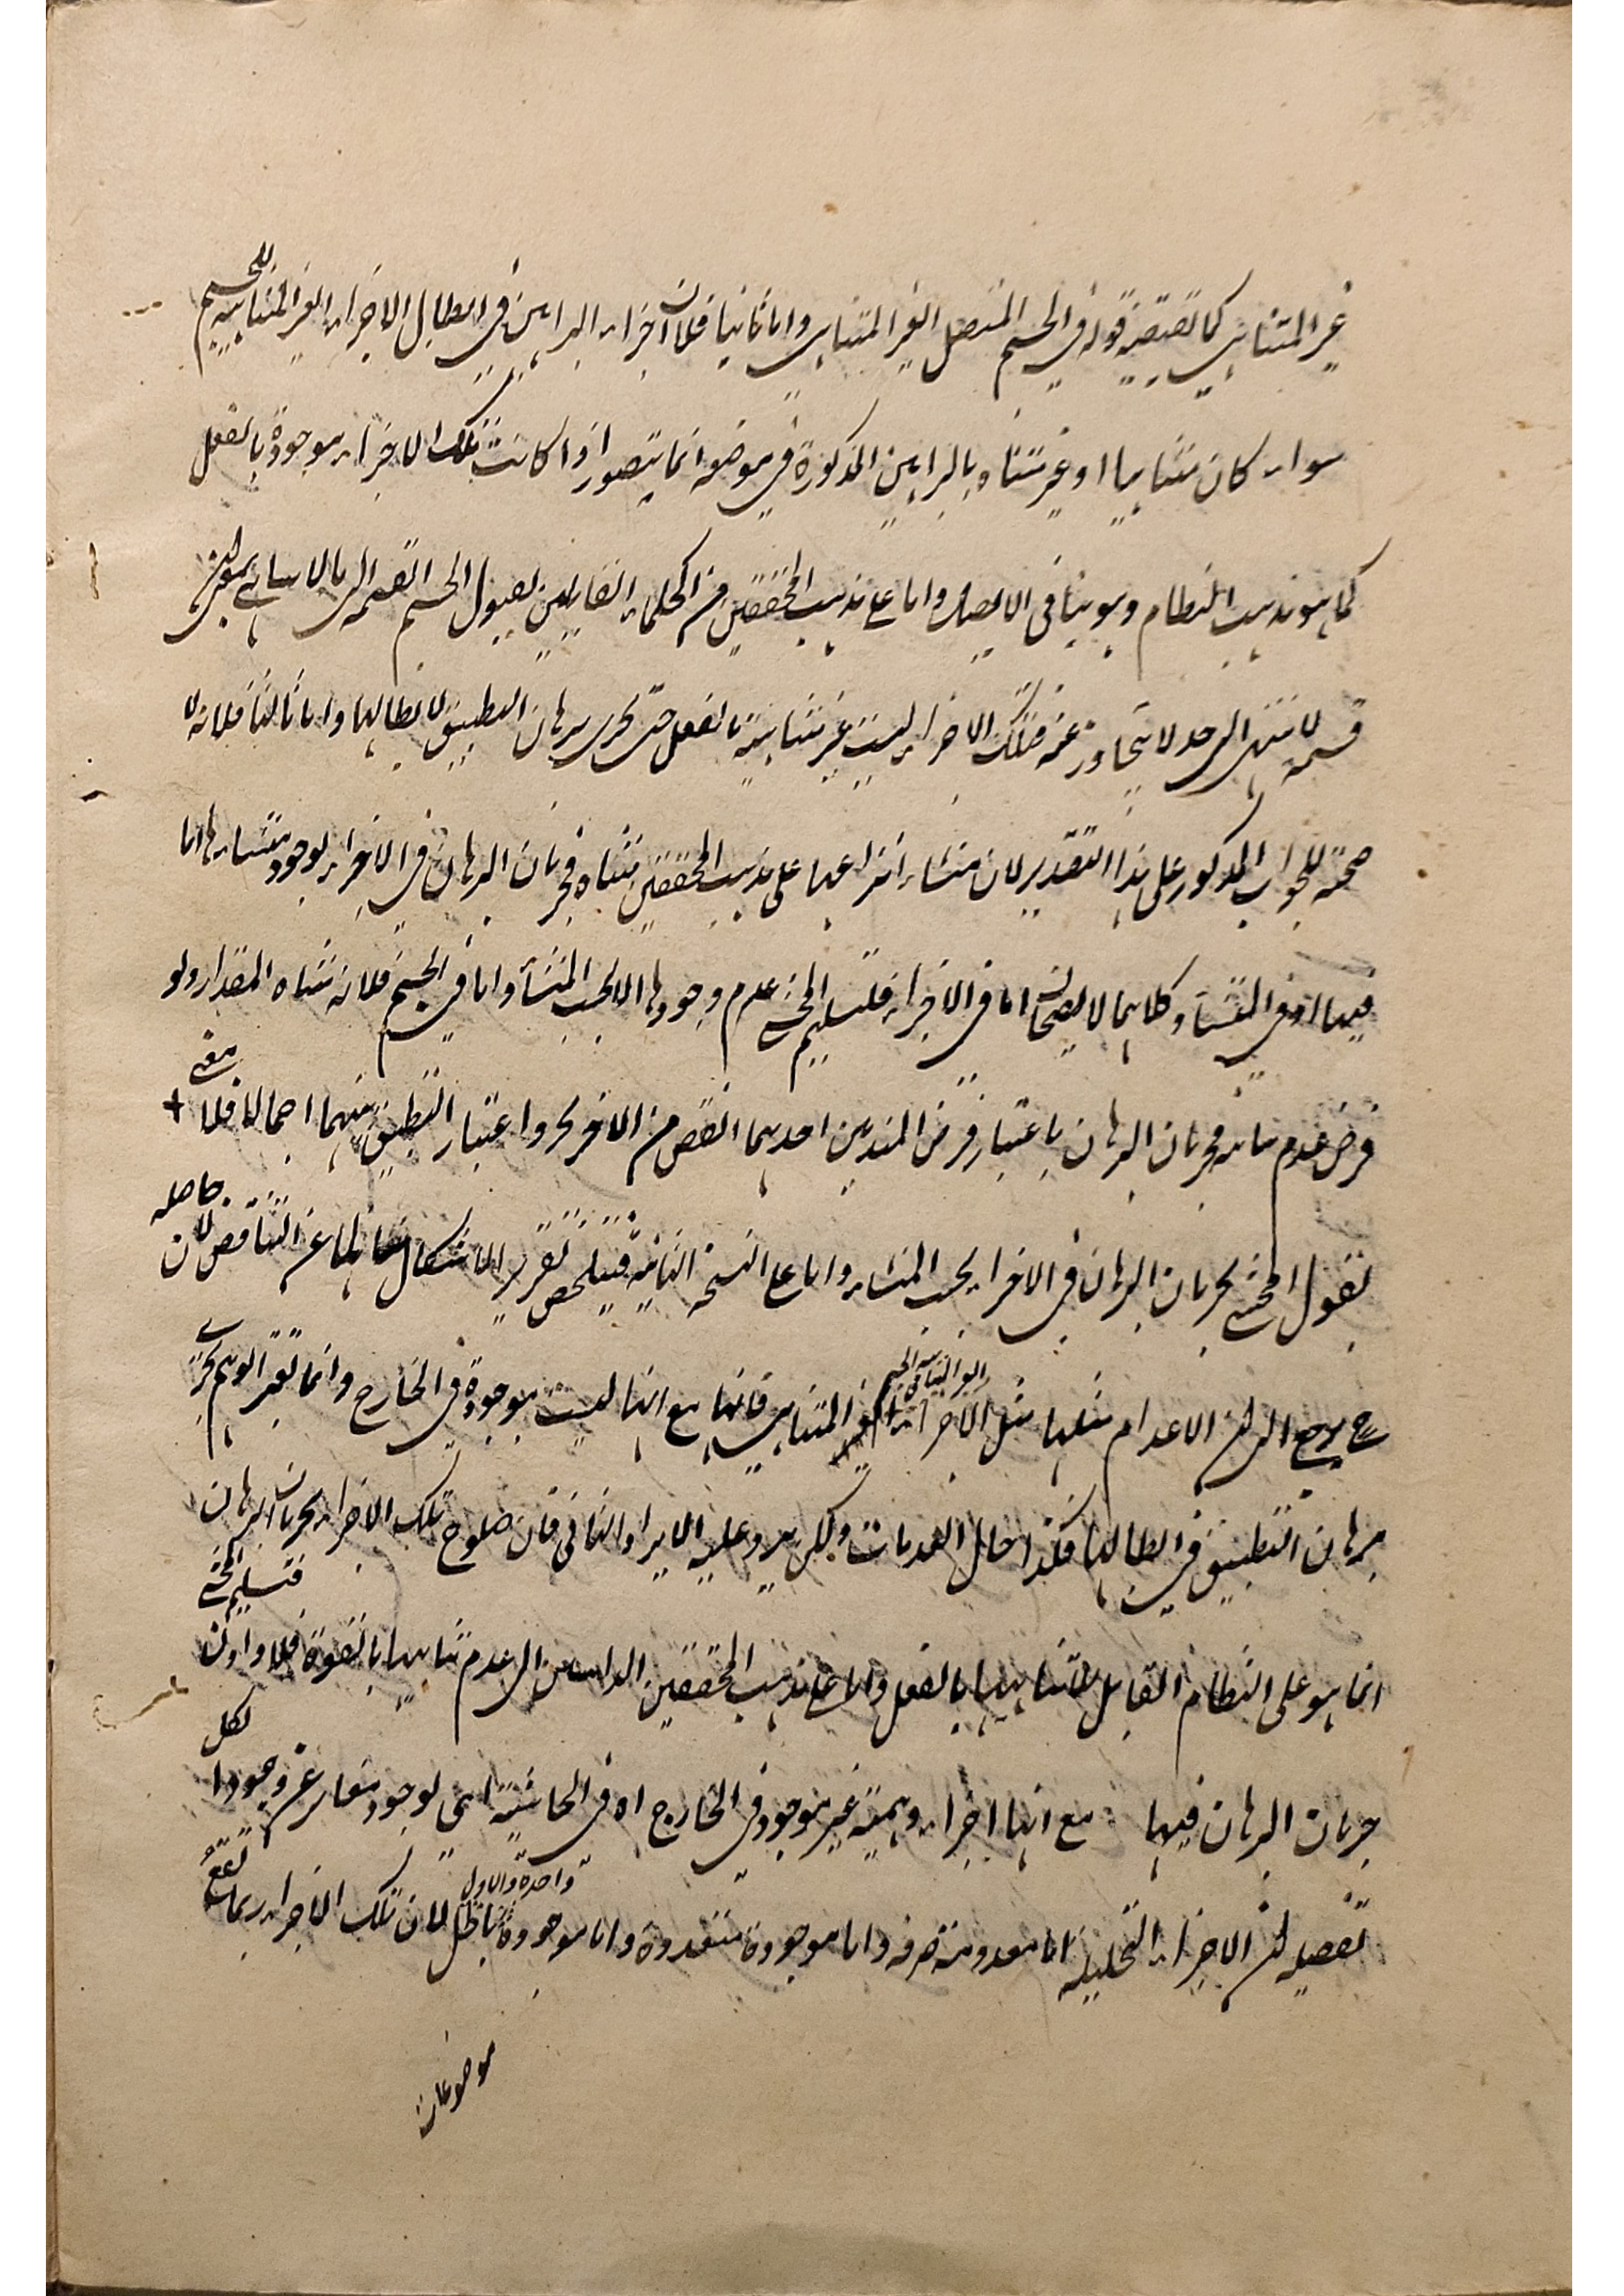 غير المتناهى كما تقتضيه قوله فى الجسم المتصل الغير المتناهى واما ثانيا فلان اجزاء البراهين فى ابطال الاجزاء الغير المتناهية للجسم
سواء كان متناهيا او غير متناه بالبراهين المذكورة فى موضعه انما يتصور اذا كانت تلك الاجزاء موجودة بالفعل
كما هو مذهب النظام وهو ينافى الاتصال واما على مذهب المحققين من الحكماء القايلين بقبول الجسم القسمة الى ما لا يتناهى بمعنى ان
قسمة لا تنتهى الى حد لا يتجاوز عنه فتلك الاجزاء ليست غير متناهية بالفعل حتى يجرى برهان التطبيق لابطالها واما ثالثا فلانه لا
صحة للجواب المذكور على هذا التقدير لان منشاء انتزاعها على مذهب المحققين متناه فجريان البرهان فى الاجزاء لوجود منشاءها اما
فيها او فى المنشاء وكلاهما لا يصحان اما فى الاجزاء فلتسليم المحشى عدم وجودها الا بحسب المنشأ واما فى الجسم فلانه متناه المقدار ولو
فرض عدم تناهيه فجريان البرهان باعتبار فرض المبدئين احدهما انقص من الاخر بجزء واعتبار التطبيق بينهما اجمالا فلا معنى +
لقول المحشى بجريان البرهان فى الاجزاء بحسب المنشاء واما على النسخة الثانية فيتلخص تقرير الاشكال خاليا عن التناقض لان حاصله
ح يرجع الى ان الاعدام مثلها مثل الاجزاء الغير المتناهية فى الجسم الغير المتناهى فانها مع انها ليست بموجودة فى الخارج وانما تعتبر الوهم يجرى
برهان التطبيق فى ابطالها فكذا حال العدمات ولكن يرد عليه الايراد الثانى فان صلوح تلك الاجزاء لجريان البرهان
انما هو على النظام القايل بلا تناهيها بالفعل واما على مذهب المحققين الذاهبين الى عدم تناهيها بالقوة فلا واولن فتسليم المحشى
جريان البرهان فيها مع انها اجزاء وهمية غير موجود فى الخارج اه فى الحاشية اى لوجود مغاير عن وجود الكل
تفصيله ان الاجزاء التحليلية اما معدومة صرفه واما موجودة متعددة واما موجودة واحدة والاول باطل لان تلك الاجزاء ربما تقع
موضوعات